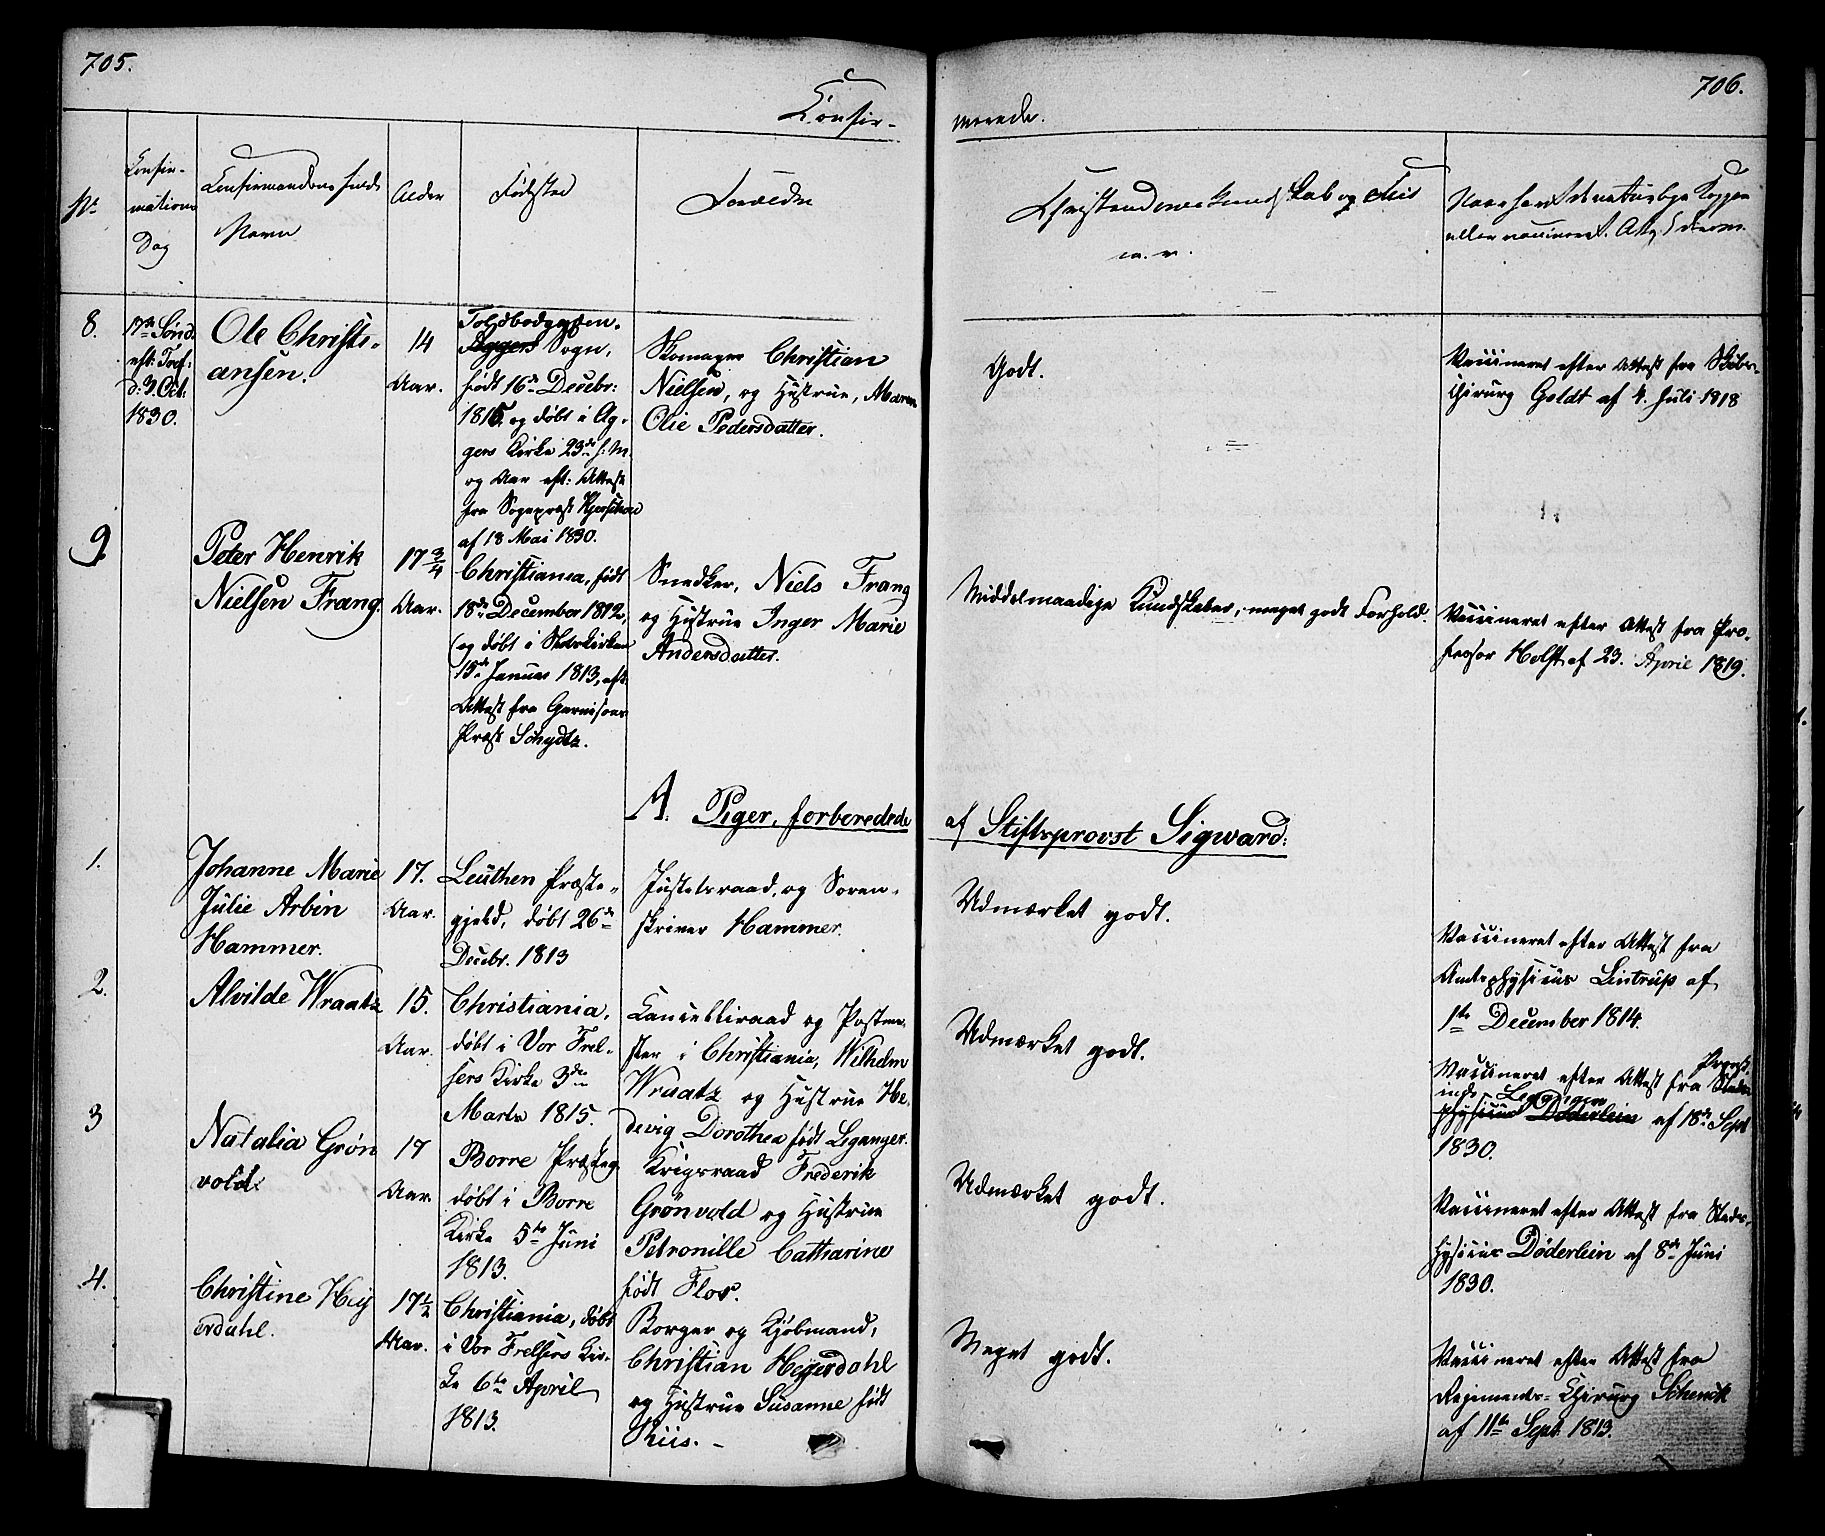 705.
706.
Confir-
merede.
No
Confir-
mations
Dag
Confirmandens fulde
Navn
Alder
Fødested
Forældre
Christendomskundskab og Flid
m. v.
Naar havt de naturlige Kopper
eller vaccineret. Attest derom.
8.
17de Sønd.
eft: Tref:
d: 3 Oct:
1830.
Ole Christi-
ansen.
14
Aar.
Toldbodgaden.
Aggers Sogn,
født 16de Decebr:
1815 og døbt i Ag-
gers Kirke 23de s: M.
og Aar eft: Attest
fra Sognepræst
af 18 Mai 1830.
Skomager Christian
Nielsen, og Hustrue, Maren
Olie Pedersdatter.
Godt.
Vaccineret efter Attest fra
Chirurg Goldt af 4. Juli 1818
9
Peter Henrik
Nielsen Frang.
17 3/4
Aar.
Christiania, født
18de December 1812,
og døbt i Slotskirken
15de Januar 1813, eft.
Attest fra Garnisons
Præst Schydtz.
Snedker, Niels Frang
og Hustrue Inger Marie
Andersdatter.
Middelmaadige Kundskaber, meget godt Forhold.
Vaccineret efter Attest fra Pro-
fessor Holst af 23. April 1819.
A. Piger, forberedede
af Stiftsprovst Sigward:
1.
Johanne Marie
Julie Arbin
Hammer.
17.
Aar.
Leuthen Præste-
gjeld, døbt 26de
Decbr. 1813
Justitsraad, og Soren-
skriver Hammer.
Udmærket godt.
Vaccineret efter Attest fra
Amtsphysicus Lintrup af
1ste December 1814.
2.
Alvilde Wraatz
15.
Aar.
Christiania,
døbt i Vor Frel-
sers Kirke 3die
Marts 1815.
Cancelliraad og Postme-
ster i Christiania, Wilhelm
Wraatz og Hustrue He-
devig Dorothea født Leganger.
Udmærket godt.
Vaccineret efter Attest fra Stads
physicus Døderlein af 18de Sept
1830.
3
Natalia Grøn
vold.
17
Aar.
Borre Præsteg.
døbt i Borre
Kirke 5te Juni
1813.
Krigsraad Frederik
Grønvold og Hustrue
Petronille Catharine
født Flor.
Udmærket godt.
Vaccineret efter Attest fra Stads-
physicus Døderlein af 8de Juni
1830.
4.
Christine Hey
erdahl.
17 1/2
Aar.
Christiania, døbt
i Vor Frelsers Kir-
ke 6te April
1813.
Borger og Kjøbmand,
Christian Heyerdahl
og Hustrue Susanne født
Riis. -
Meget godt.
Vaccineret efter Attest fra
Regiments-Chirurg Schenck
af 11te Sept. 1813.